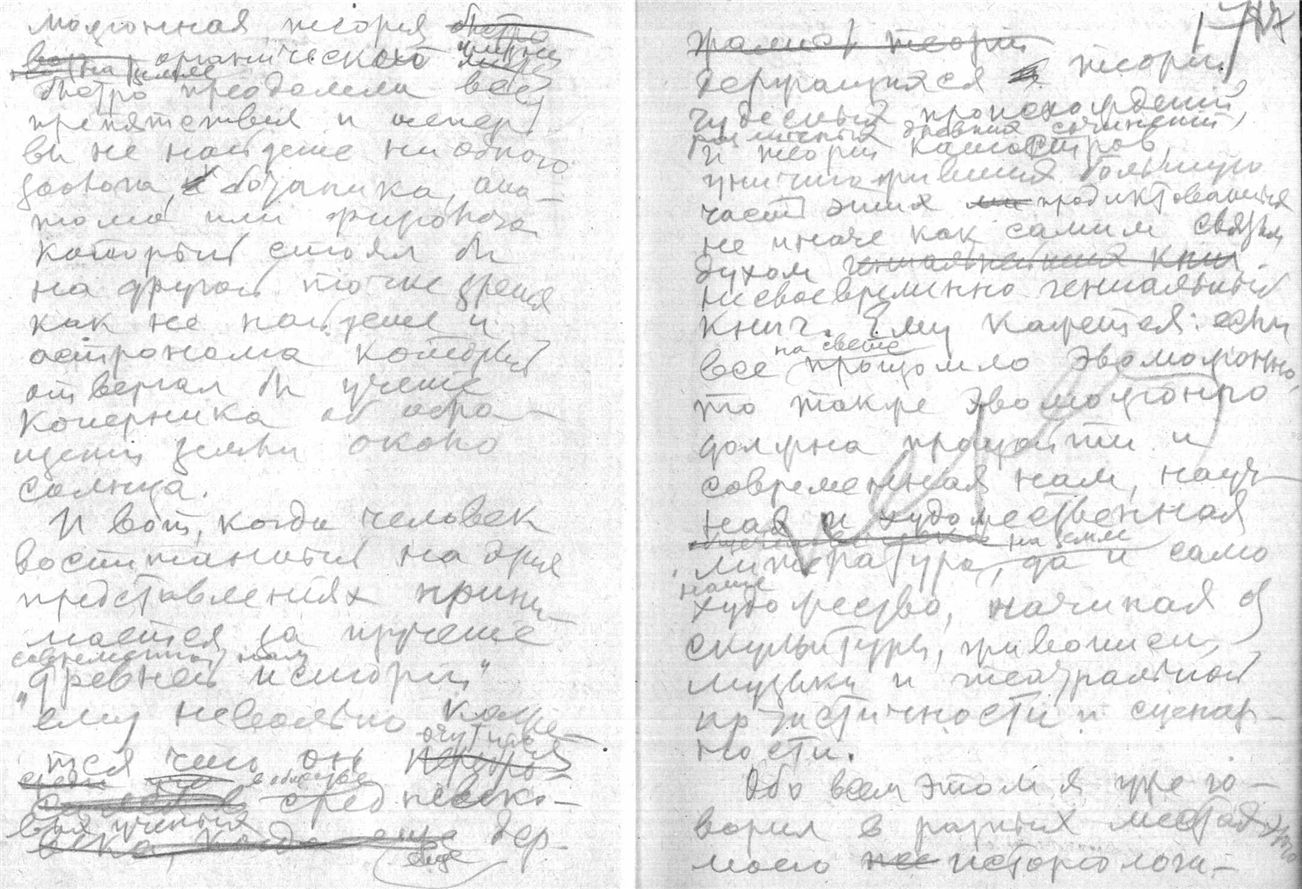 люционная теория быстро
органической жизни
на земле
быстро преодолела все
препятствия и теперь
вы не найдете ни одного
зоолога, ботаника, ана-
тома или физиолога
который стоял бы
на другой точке зрения
как не найдете и
астронома который
отвергал бы учение
Коперника об обра-
щении земли около
солнца.
И вот, когда человек
воспитанный на этих
представлениях прини-
мается за изучение
современной нам
"древней истории"
ему невольно каже-
очутился
тся что он
среди в обществе
сред невеко-
вых ученых
века, когда еще дер-
еще
177
жались теории
держащихся теорий
чудесных происхождений
различных древних сочинений,
и теорий катастроф,
уничтоживших большую
часть этих продиктованных
не иначе как самим святым
духом гениальнейших книг
несвоевременно гениальных
книг. Ему кажется: если
на свете
все происходило эволюционно,
то также эволюционно
должна произойти и
современная нам, науч-
ная и художественная
на земле
литература, да и само
наше
художество, начиная с
скульптуры, живописи,
музыки и театральной
артистичности и сценар-
ности.
Обо всем этом я уже го-
ворил в разных местах этого
моего не историологи-